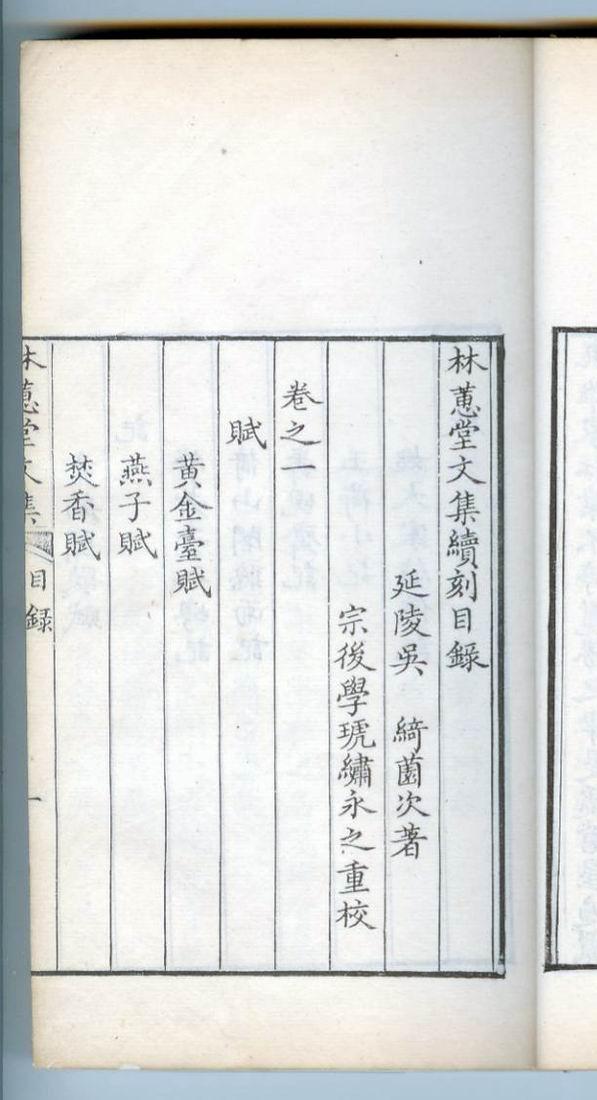 林蕙堂文集續刻目錄
延陵吳　綺薗次著
宗後學琥繡永之重校
卷之一
賦
黃金臺賦
燕子賦
焚香賦
林蕙堂文集　目録　一